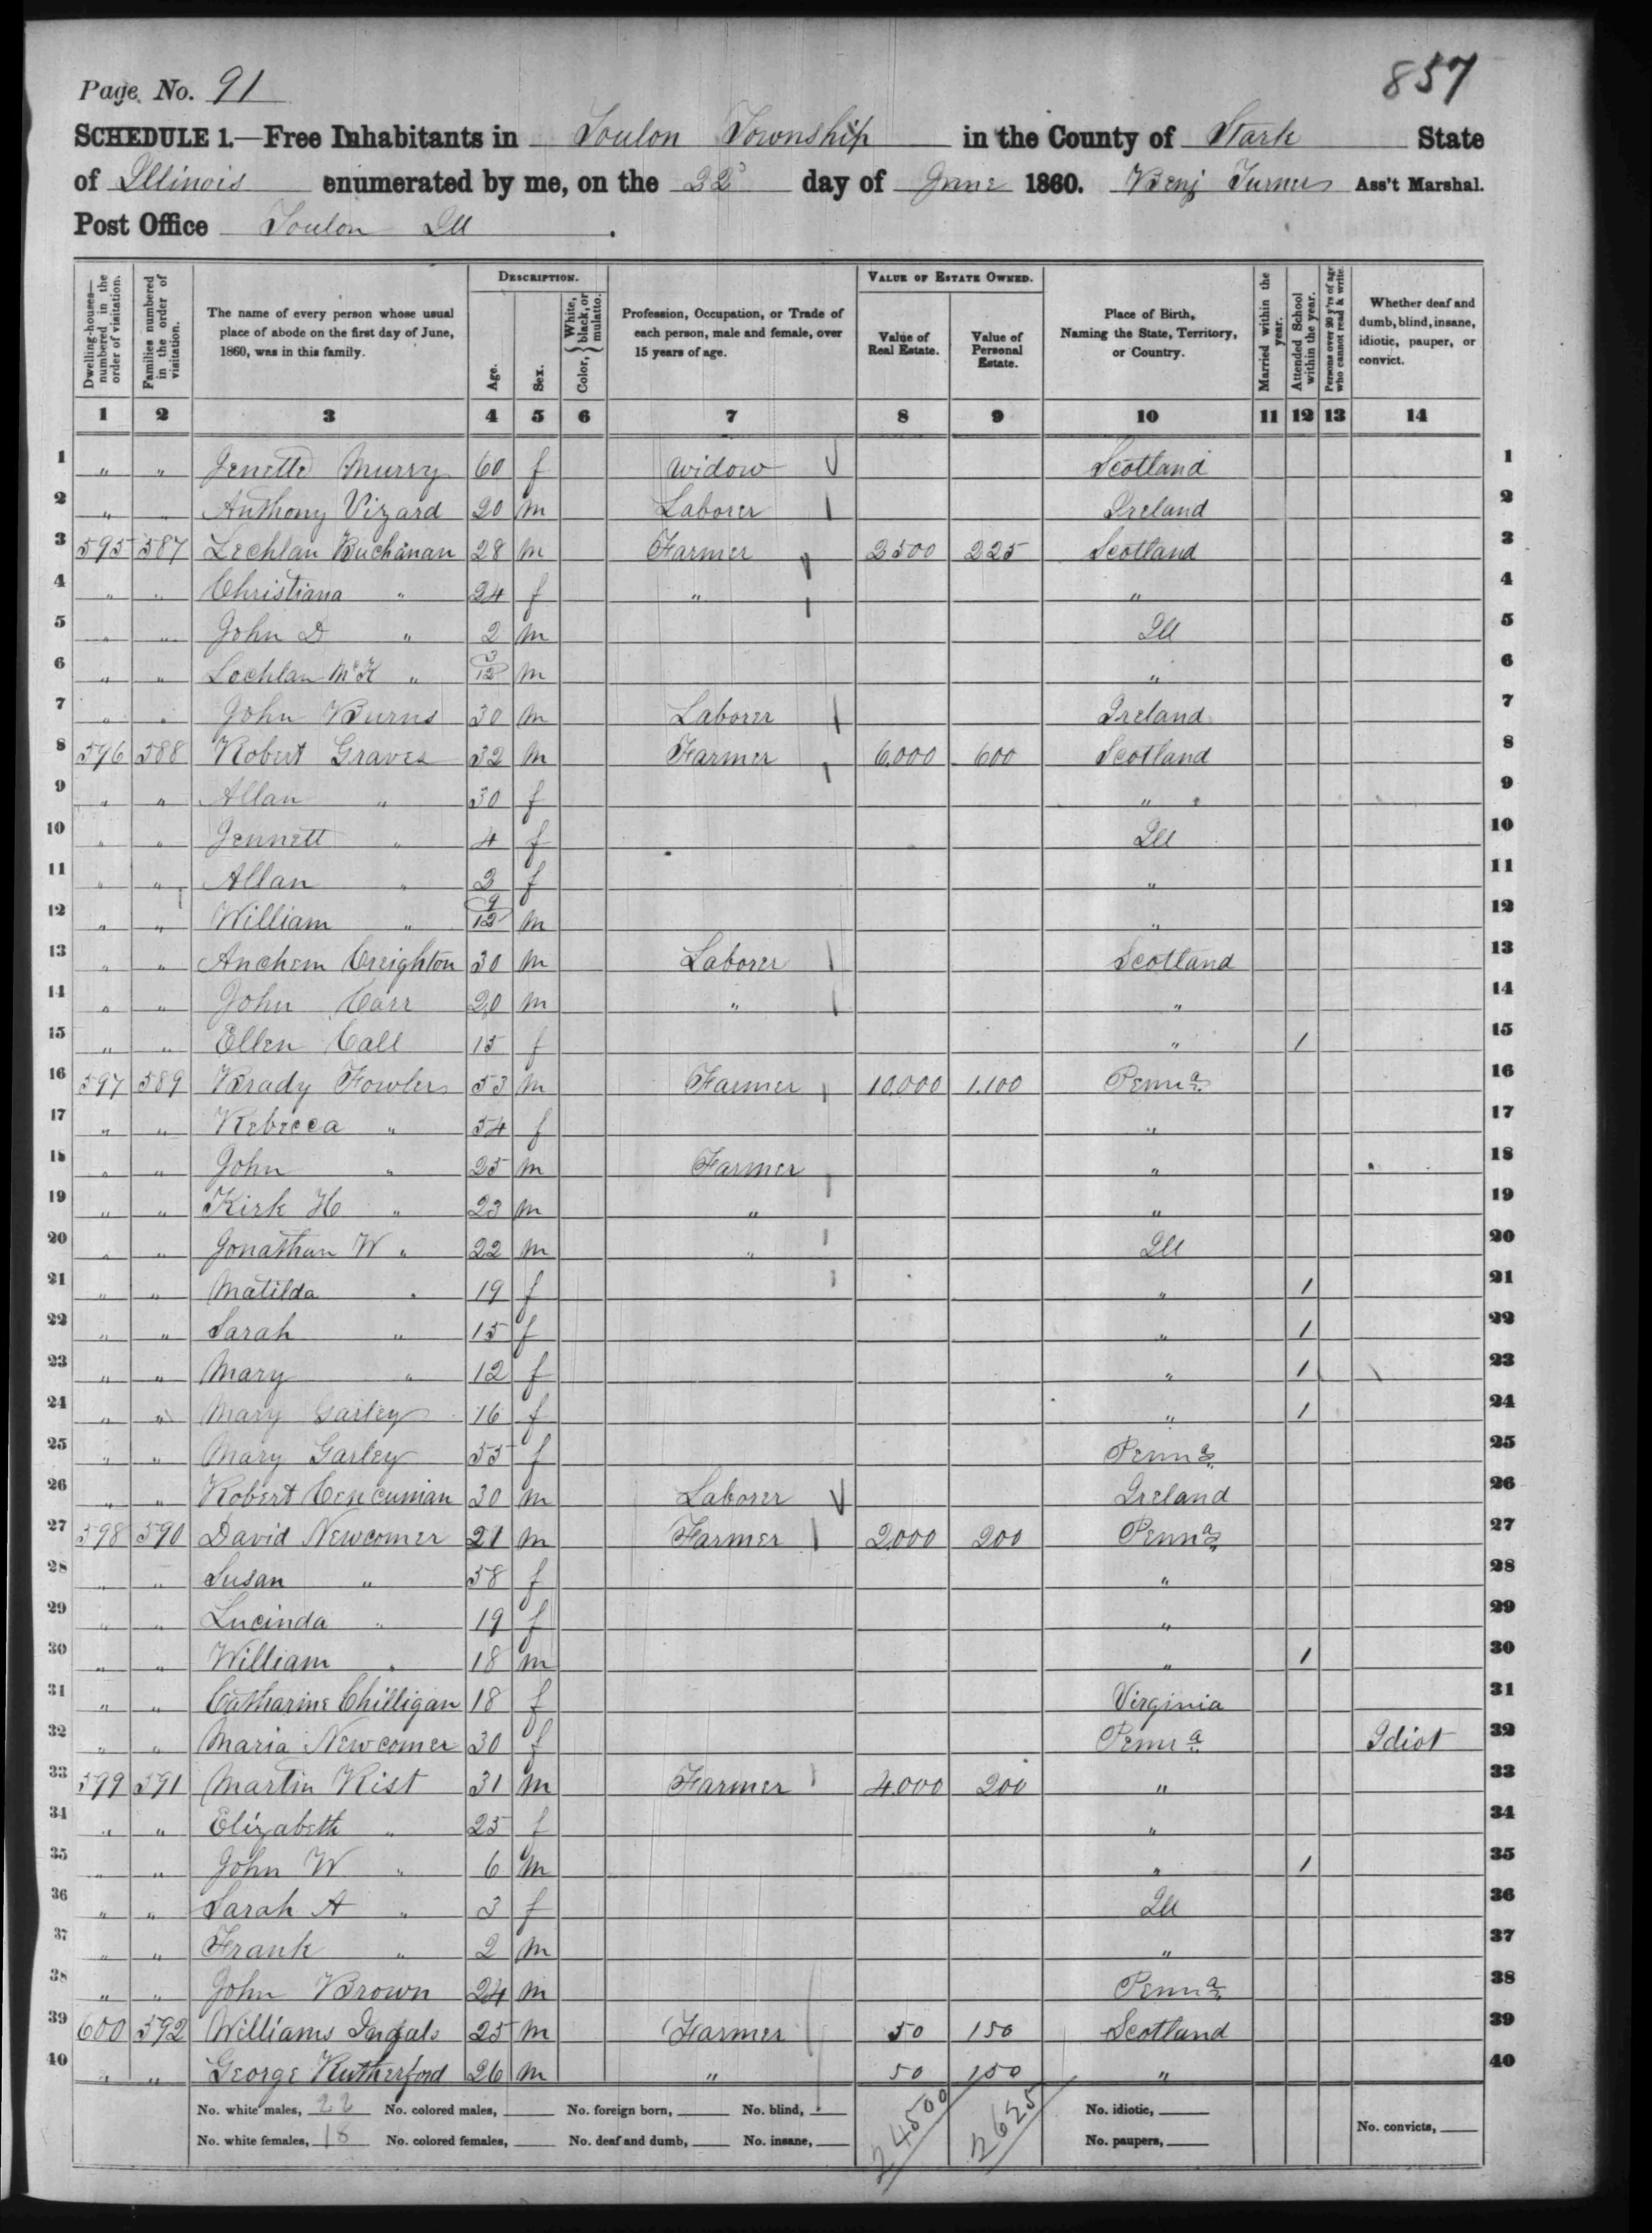 Page No. 91
857
SCHEDULE 1.—Free Inhabitants in Toulon Township in the County of Stark State
of Illinois enumerated by me, on the 22d day of June 1860. Benj Turner Ass't Marshal.
Post Office Toulon Ill.
DESCRIPTION. VALUE OF ESTATE OWNED.
Dwelling-houses—numbered in the order of visitation. Families numbered in the order of visitation. The name of every person whose usual place of abode on the first day of June, 1860, was in this family. Age. Sex. Color, { White, black, or mulatto. Profession, Occupation, or Trade of each person, male and female, over 15 years of age. Value of Real Estate. Value of Personal Estate. Place of Birth, Naming the State, Territory, or Country. Married within the year. Attended School within the year. Persons over 20 y'rs of age who cannot read & write. Whether deaf and dumb, blind, insane, idiotic, pauper, or convict.
1 2 3 4 5 6 7 8 9 10 11 12 13 14
1 " " Jenette Murry 60 f Widow Scotland 1
2 " " Anthony Vizard 20 m Laborer Ireland 2
3 595 587 Lechlan Buchanan 28 m Farmer 2500 225 Scotland 3
4 " " Christiana " 24 f " " 4
5 " " John D " 2 m Ill 5
6 " " Lochlan McK " 3/12 m " 6
7 " " John Burns 30 m Laborer Ireland 7
8 596 588 Robert Graves 32 m Farmer 6,000 600 Scotland 8
9 " " Allan " 30 f " 9
10 " " Jennett " 4 f Ill 10
11 " " Allan " 2 f " 11
12 " " William " 9/12 m " 12
13 " " Anchem Creighton 30 m Laborer Scotland 13
14 " " John Carr 20 m " " 14
15 " " Ellen Call 15 f " 1 15
16 597 589 Brady Fowler 53 m Farmer 10,000 1,100 Penna 16
17 " " Rebecca " 54 f " 17
18 " " John " 25 m Farmer " 18
19 " " Kirk H " 23 m " " 19
20 " " Jonathan W " 22 m " Ill 20
21 " " Matilda " 19 f " 1 21
22 " " Sarah " 15 f " 1 22
23 " " Mary " 12 f " 1 23
24 " " Mary Garley 16 f " 1 24
25 " " Mary Garley 55 f Penna 25
26 " " Robert 30 m Laborer Ireland 26
27 598 590 David Newcomer 21 m Farmer 2,000 200 Penna 27
28 " " Susan " 58 f " 28
29 " " Lucinda " 19 f " 29
30 " " William " 18 m " 1 30
31 " " Catharine Chilligan 18 f Virginia 31
32 " " Maria Newcomer 30 f Penna Idiot 32
33 599 591 Martin Rist 31 m Farmer 4,000 200 " 33
34 " " Elizabeth " 25 f " 34
35 " " John W " 6 m " 1 35
36 " " Sarah A " 3 f Ill 36
37 " " Frank " 2 m " 37
38 " " John Brown 24 m Penna 38
39 600 592 Williams Ingals 25 m Farmer 50 150 Scotland 39
40 " " George Rutherford 26 m " 50 150 " 40
No. white males, 22 No. colored males, No. foreign born, No. blind, 24500 2625 No. idiotic,
No. white females, 18 No. colored females, No. deaf and dumb, No. insane, No. paupers, No. convicts,